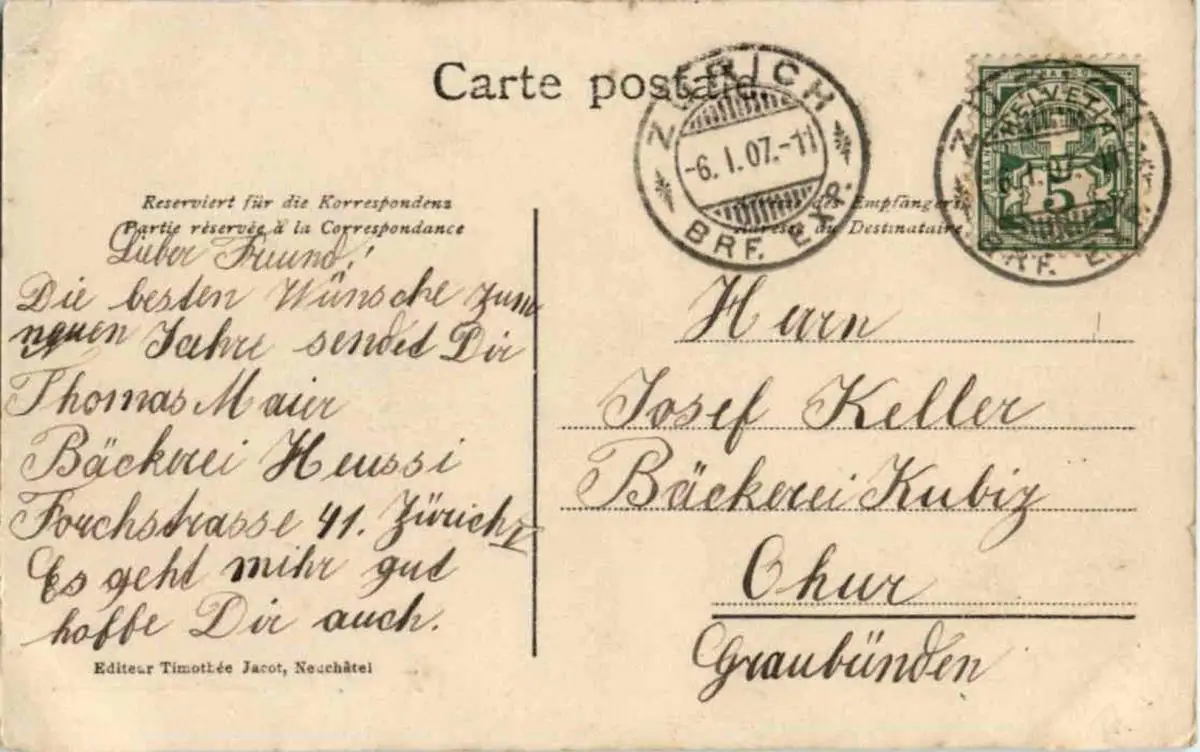 Carte postale
ZÜRICH
-6.I.07.-11
BRF. EXP.
HELVETIA
5
Reserviert für die Korrespondenz
Partie réservée à la Correspondance
des Empfängers
Adresse du Destinataire
Lieber Freund!
Die besten Wünsche zum
neuen Jahre sendet Dir
Thomas Maier
Bäckerei Heussi
Forchstrasse 41. Zürich V
Es geht mihr gut
hoffe Dir auch.
Editeur Timothée Jacot, Neuchâtel
Herrn
Josef Keller
Bäckerei Kubiz
Chur
Graubünden